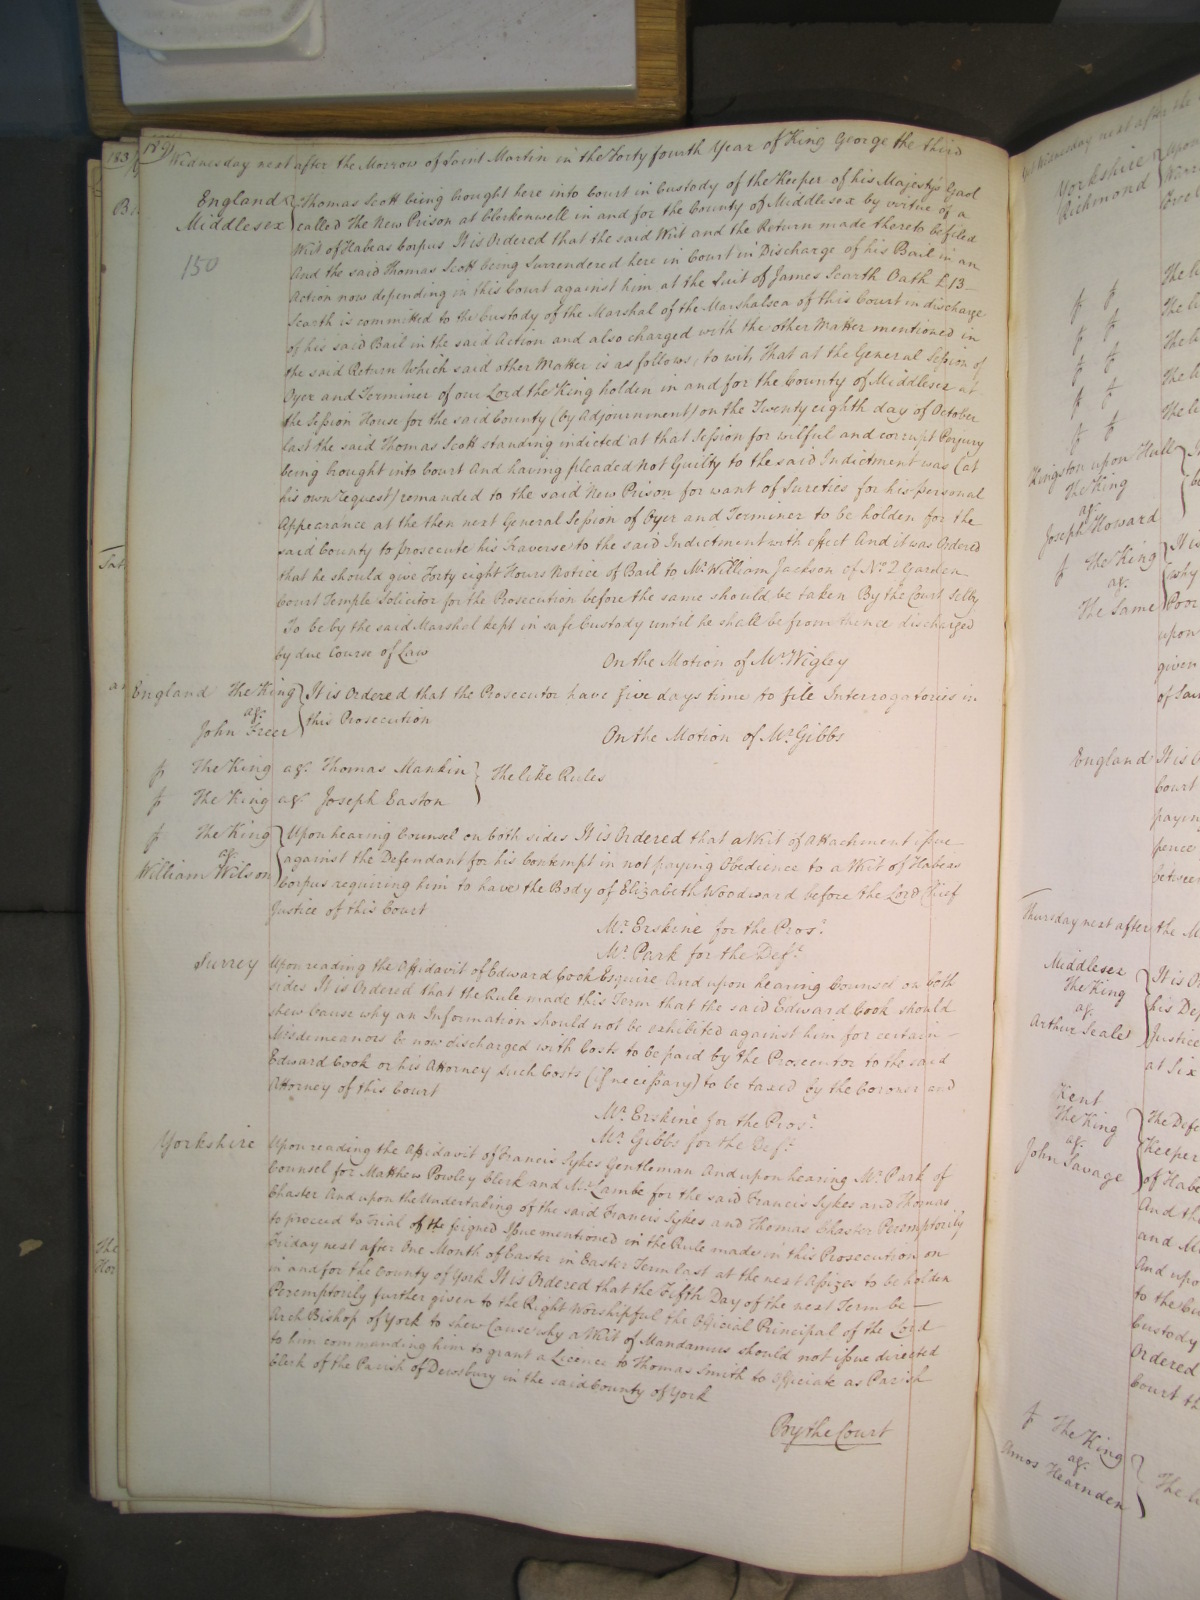 183
189
Wednesday next after the Morrow of Saint Martin in the Forty fourth Year of King George the third
England
Middlesex
150
Thomas Scott being brought here into Court in Custody of the Keeper of his Majesty's Gaol
called The New Prison at Clerkenwell in and for the County of Middlesex by virtue of a
Writ of Habeas Corpus It is Ordered that the said Writ and the Return made thereto be filed
And the said Thomas Scott being Surrendered here in Court in Discharge of his Bail in an
Action now depending in this Court against him at the Suit of James Scarth Oath £13—
Scarth is committed to the Custody of the Marshal of the Marshalsea of this Court in discharge
of his said Bail in the said Action and also charged with the other Matter mentioned in
the said Return Which said other Matter is as follows, to wit, That at the General Session of
Oyer and Terminer of our Lord the King holden in and for the County of Middlesex at
the Session House for the said County (by Adjournment) on the Twenty eighth day of October
last the said Thomas Scott standing indicted at that Session for wilful and corrupt Perjury
being brought into Court And having pleaded Not Guilty to the said Indictment was (at
his own request) remanded to the said New Prison for want of Sureties for his personal
Appearance at the then next General Session of Oyer and Terminer to be holden for the
said County to prosecute his Traverse to the said Indictment with effect And it was Ordered
that he should give Forty eight Hours Notice of Bail to Mr. William Jackson of No. 2 Garden
Court Temple Solicitor for the Prosecution before the same should be taken By the Court, Selby
To be by the said Marshal kept in safe Custody until he shall be from thence discharged
by due Course of Law
On the Motion of Mr. Wigley
England The King
agt.
John Freer
It is Ordered that the Prosecutor have five days time to file Interrogatories in
this Prosecution
On the Motion of Mr. Gibbs
The King agt. Thomas Mankin
The King agt. Joseph Easton
The like Rules
The King
agt.
William Wilson
Upon hearing Counsel on both sides It is Ordered that a Writ of Attachment issue
against the Defendant for his Contempt in not paying Obedience to a Writ of Habeas
Corpus requiring him to have the Body of Elizabeth Woodward before the Lord Chief
Justice of this Court
Mr. Erskine for the Prosr.
Mr. Park for the Deft.
Surrey
Upon reading the Affidavit of Edward Cook Esquire And upon hearing Counsel on both
sides It is Ordered that the Rule made this Term that the said Edward Cook should
shew Cause why an Information should not be exhibited against him for certain—
Misdemeanors be now discharged with Costs to be paid by the Prosecutor to the said
Edward Cook or his Attorney Such Costs (if necessary) to be taxed by the Coroner and
Attorney of this Court
Mr. Erskine for the Prosr.
Mr. Gibbs for the Deft.
Yorkshire
Upon reading the Affidavit of Francis Sykes Gentleman And upon hearing Mr. Park of
Counsel for Matthew Powley Clerk and Mr. Lambe for the said Francis Sykes and Thomas
Chaster And upon the Undertaking of the said Francis Sykes and Thomas Chaster Peremptorily
to proceed to Trial of the feigned Issue mentioned in the Rule made in this Prosecution on
Friday next after One Month of Easter in Easter Term last at the next Assizes to be holden
in and for the County of York It is Ordered that the Fifth Day of the next Term be—
Peremptorily further given to the Right Worshipful the Official Principal of the Lord
Arch Bishop of York to shew Cause why a Writ of Mandamus should not issue directed
to him commanding him to grant a Licence to Thomas Smith to Officiate as Parish
Clerk of the Parish of Dewsbury in the said County of York
By the Court
Yorkshire
Richmond
Kingston upon Hull
The King
agt.
Joseph Howard
The King
agt.
The Same
upon
given
England
It is O
Court
between
Thursday next after the M
Middlesex
The King
agt.
Arthur Seale
It is O
his Def
Justice
at Six
Kent
The King
agt.
John Savage
The Defe
Keeper
of Habe
And th
and M
And upo
to the Cu
Custody
Ordered
Court th
The King
agt.
Amos Hearnden
The li